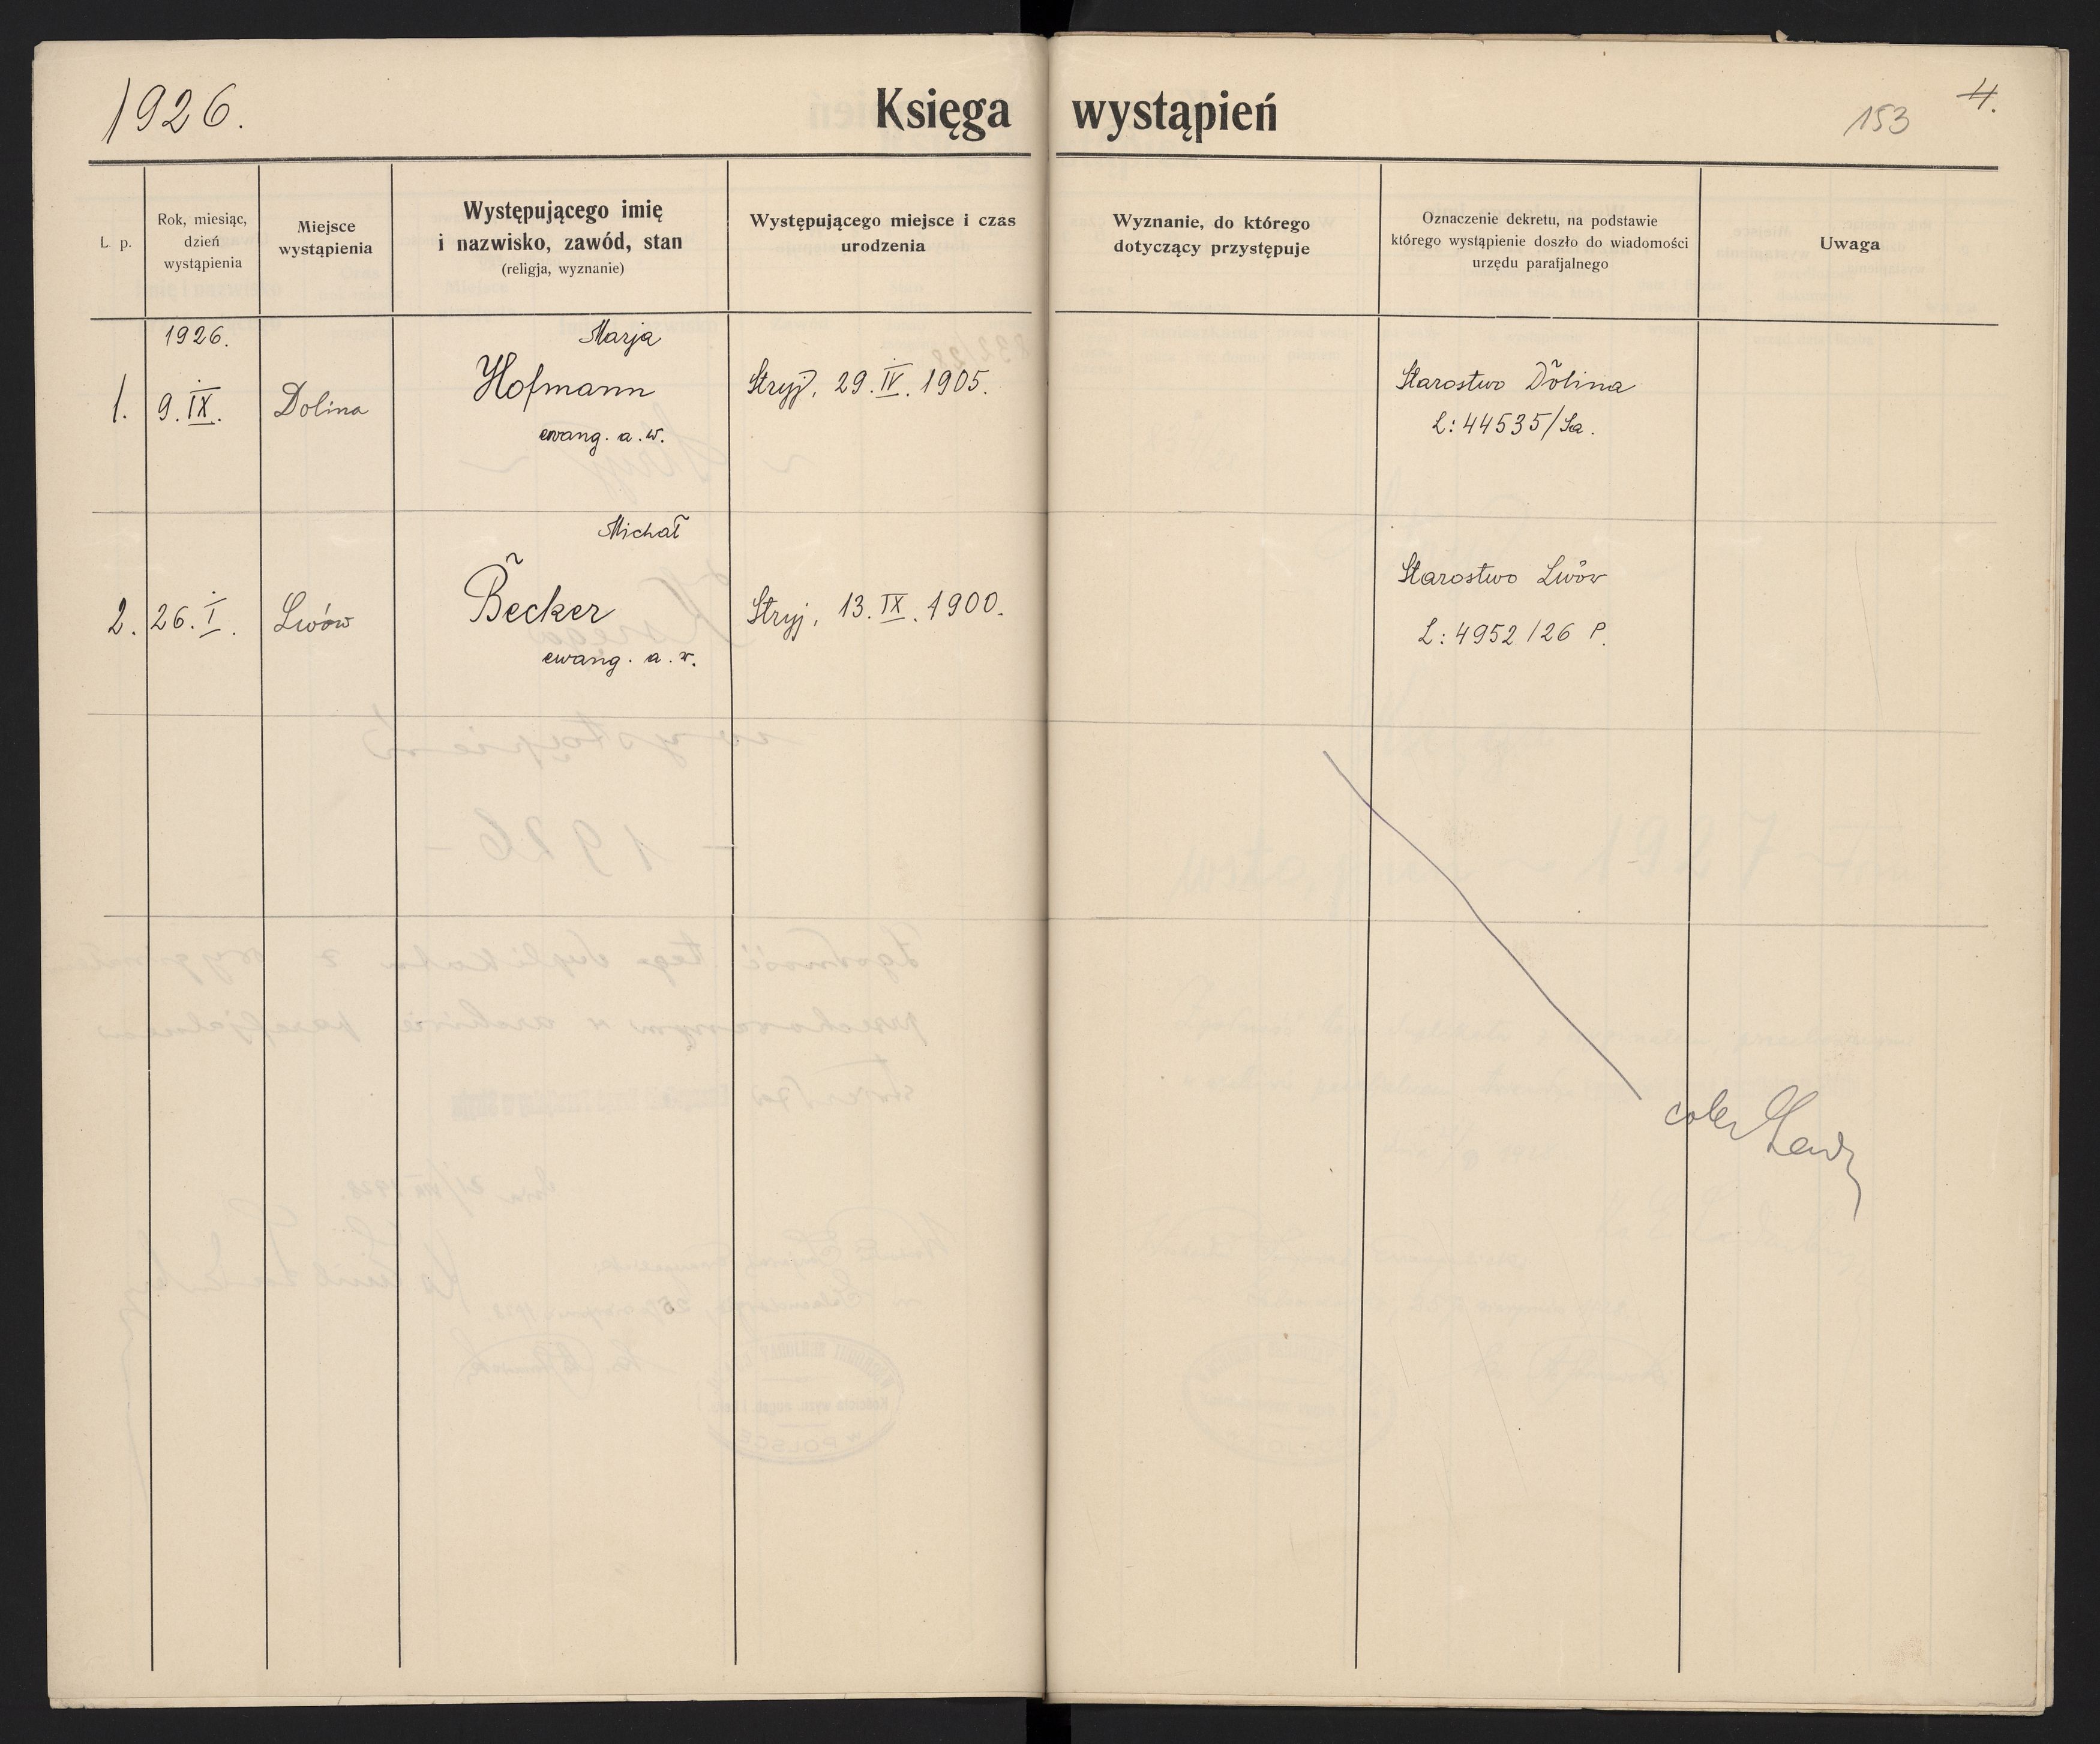 1926.
Księga wystąpień
153
4.
L. p.
Rok, miesiąc,
dzień
wystąpienia
Miejsce
wystąpienia
Występującego imię
i nazwisko, zawód, stan
(religja, wyznanie)
Występującego miejsce i czas
urodzenia
Wyznanie, do którego
dotyczący przystępuje
Oznaczenie dekretu, na podstawie
którego wystąpienie doszło do wiadomości
urzędu parafjalnego
Uwaga
1926.
1.
9. IX.
Dolina
Marja
Hofmann
ewang. a. w.
Stryj, 29. IV. 1905.
Starostwo Dolina
L: 44535/
2.
26. I.
Lwów
Michał
Becker
ewang. a. w.
Stryj, 13. IX. 1900.
Starostwo Lwów
L: 4952/26 P.